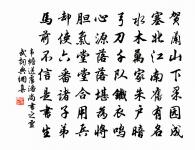 賀蘭山下果園成
塞北江南舊有名
水木萬家朱戶暗
弓刀千隊鐵衣鳴
心源落落堪為將
膽氣堂堂合用兵
卻使六番諸子弟
馬前不信是書生
韋蟾送盧潘尚書之靈
武詞典網集